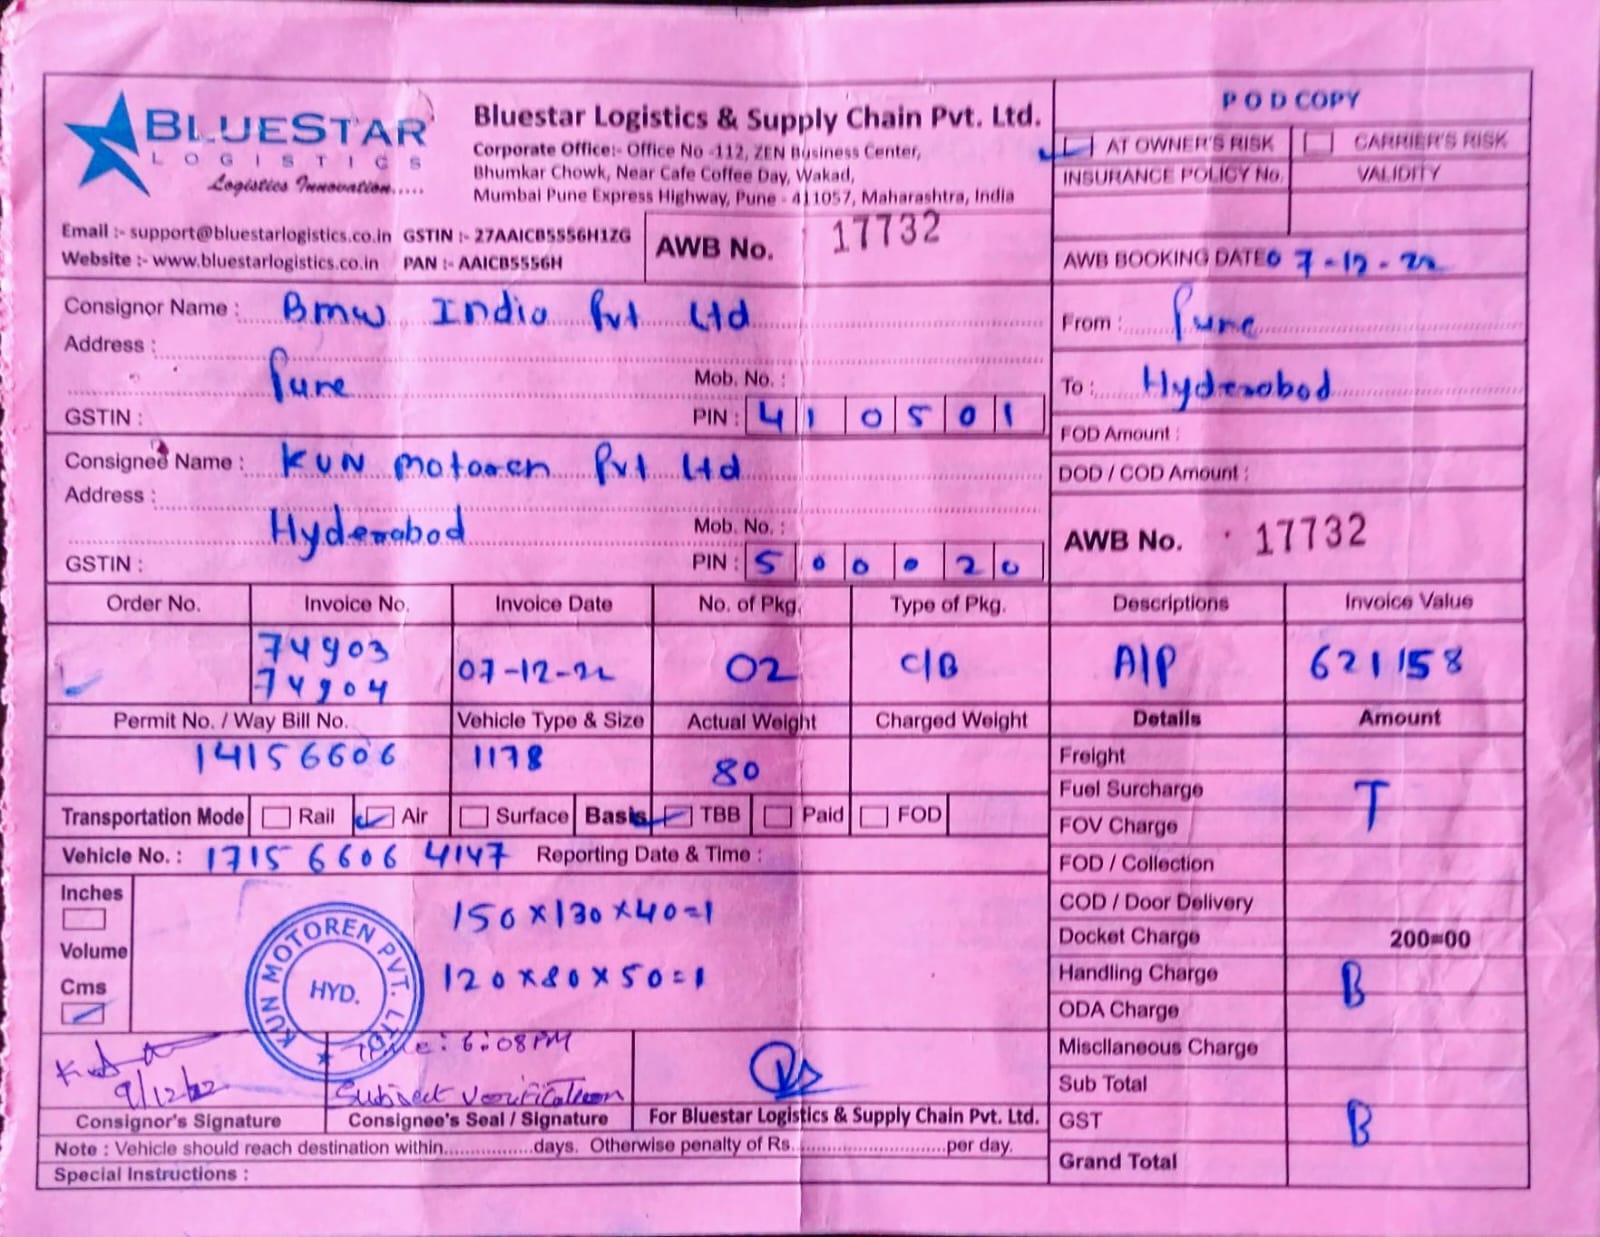 BLUESTAR
LOGISTICS
Logistics Innovation.....
Bluestar Logistics & Supply Chain Pvt. Ltd.
Corporate Office:- Office No -112, ZEN Business Center,
Bhumkar Chowk, Near Cafe Coffee Day, Wakad,
Mumbai Pune Express Highway, Pune - 411057, Maharashtra, India
Email :- support@bluestarlogistics.co.in GSTIN :- 27AAICB5556H1ZG
Website :- www.bluestarlogistics.co.in PAN :- AAICB5556H
AWB No. 17732
POD COPY
AT OWNER'S RISK CARRIER'S RISK
INSURANCE POLICY No. VALIDITY
AWB BOOKING DATE 07-12-22
Consignor Name : BMW India Pvt Ltd
Address :
Pune Mob. No. :
GSTIN : PIN : 410501
From : Pune
To : Hyderabad
FOD Amount :
DOD / COD Amount :
Consignee Name : KUN Motoren Pvt Ltd
Address :
Hyderabad Mob. No. :
GSTIN : PIN : 500020
AWB No. 17732
Order No. Invoice No. Invoice Date No. of Pkg. Type of Pkg. Descriptions Invoice Value
74903
74904 07-12-22 02 C/B A/P 621158
Permit No. / Way Bill No. Vehicle Type & Size Actual Weight Charged Weight Details Amount
14156606 1178 80
Transportation Mode Rail Air Surface Basis TBB Paid FOD
Vehicle No. : 1715 6606 4147 Reporting Date & Time :
Inches
Volume
Cms
150x130x40=1
120x80x50=1
KUN MOTOREN PVT. LTD.
HYD.
Freight
Fuel Surcharge T
FOV Charge
FOD / Collection
COD / Door Delivery
Docket Charge 200=00
Handling Charge B
ODA Charge
Miscllaneous Charge
Sub Total
GST B
Grand Total
9/12/22
Time: 6:08PM
Subject verification
Consignor's Signature Consignee's Seal / Signature For Bluestar Logistics & Supply Chain Pvt. Ltd.
Note : Vehicle should reach destination within.................days. Otherwise penalty of Rs............................per day.
Special Instructions :